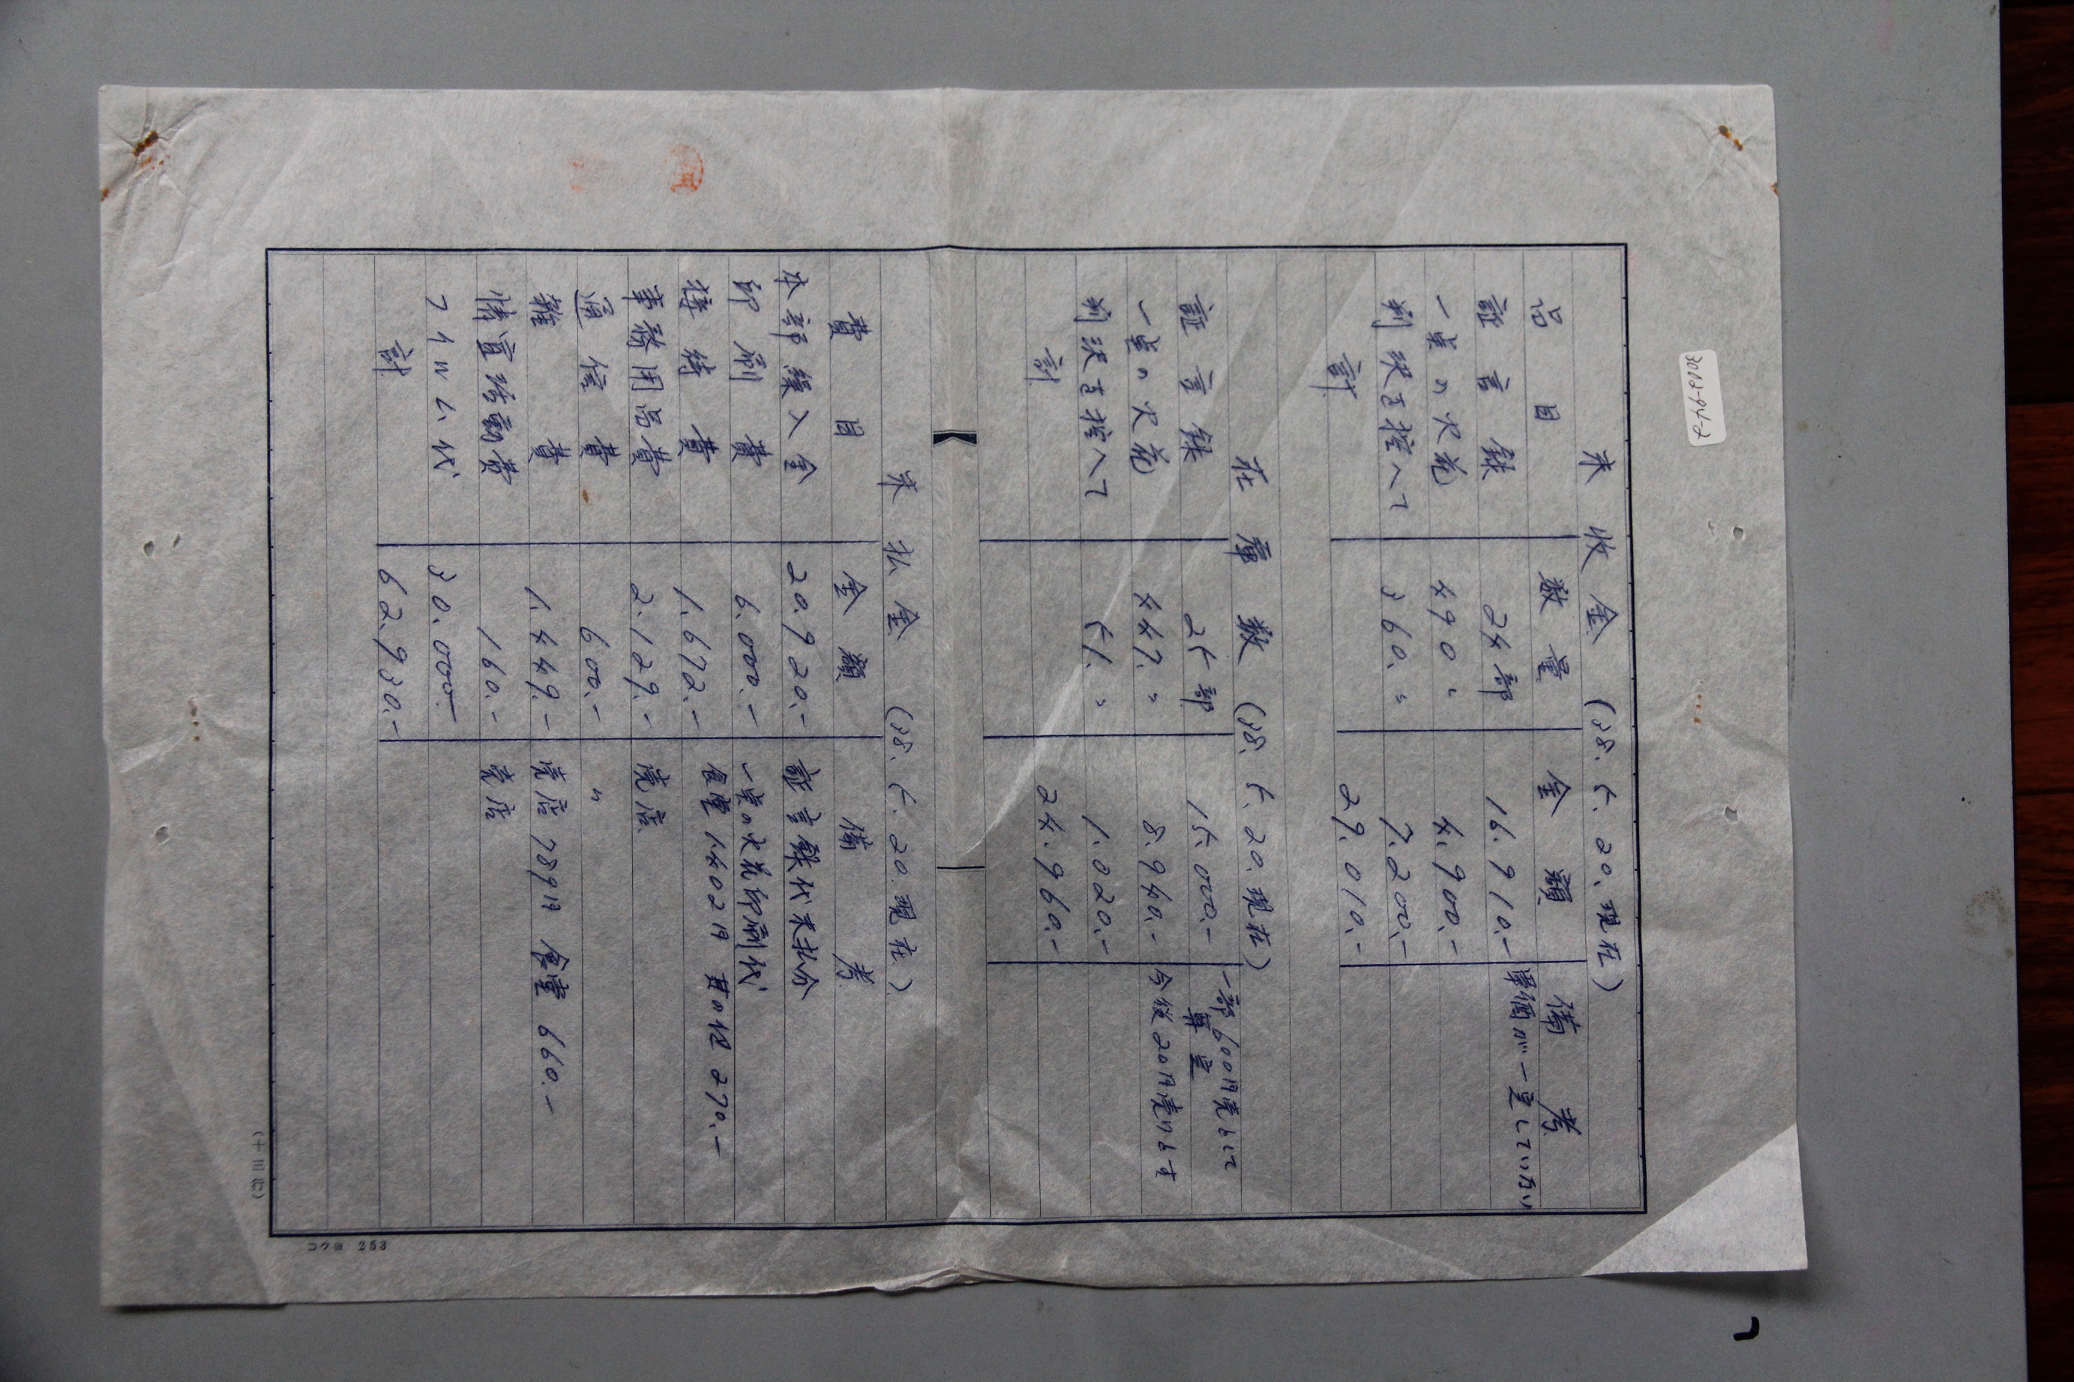 未収金 (38. 5. 20. 現在)
品目 数量 金額 備考
証言録 24部 16.910.- 単価が一定していない
一票の火花 490〃 4.900.-
判決を控へて 360.〃 7.200.-
計 29.010.-
在庫数 (38. 5. 20. 現在)
証言録 25部 15.000.- 一部600円売として
算定
一票の火花 447.〃 8.940.- 今後20円売りとす
判決を控へて 51.〃 1.020.-
計 24.960.-
未払金 (38. 5. 20. 現在)
費目 金額 備考
本部繰入金 20.920.- 証言録代未払分
印刷費 6.000.- 一票の火花印刷代
接待費 1.672.- 食堂 1.402円 其の他 270.-
事務用品費 2.129.- 売店
通信費 600.- 〃
雑費 1.449.- 売店 789円 食堂 660.-
情宣活動費 160.- 売店
フイルム代 30.000.-
計 62.930.-
(十三行)
コクヨ 253